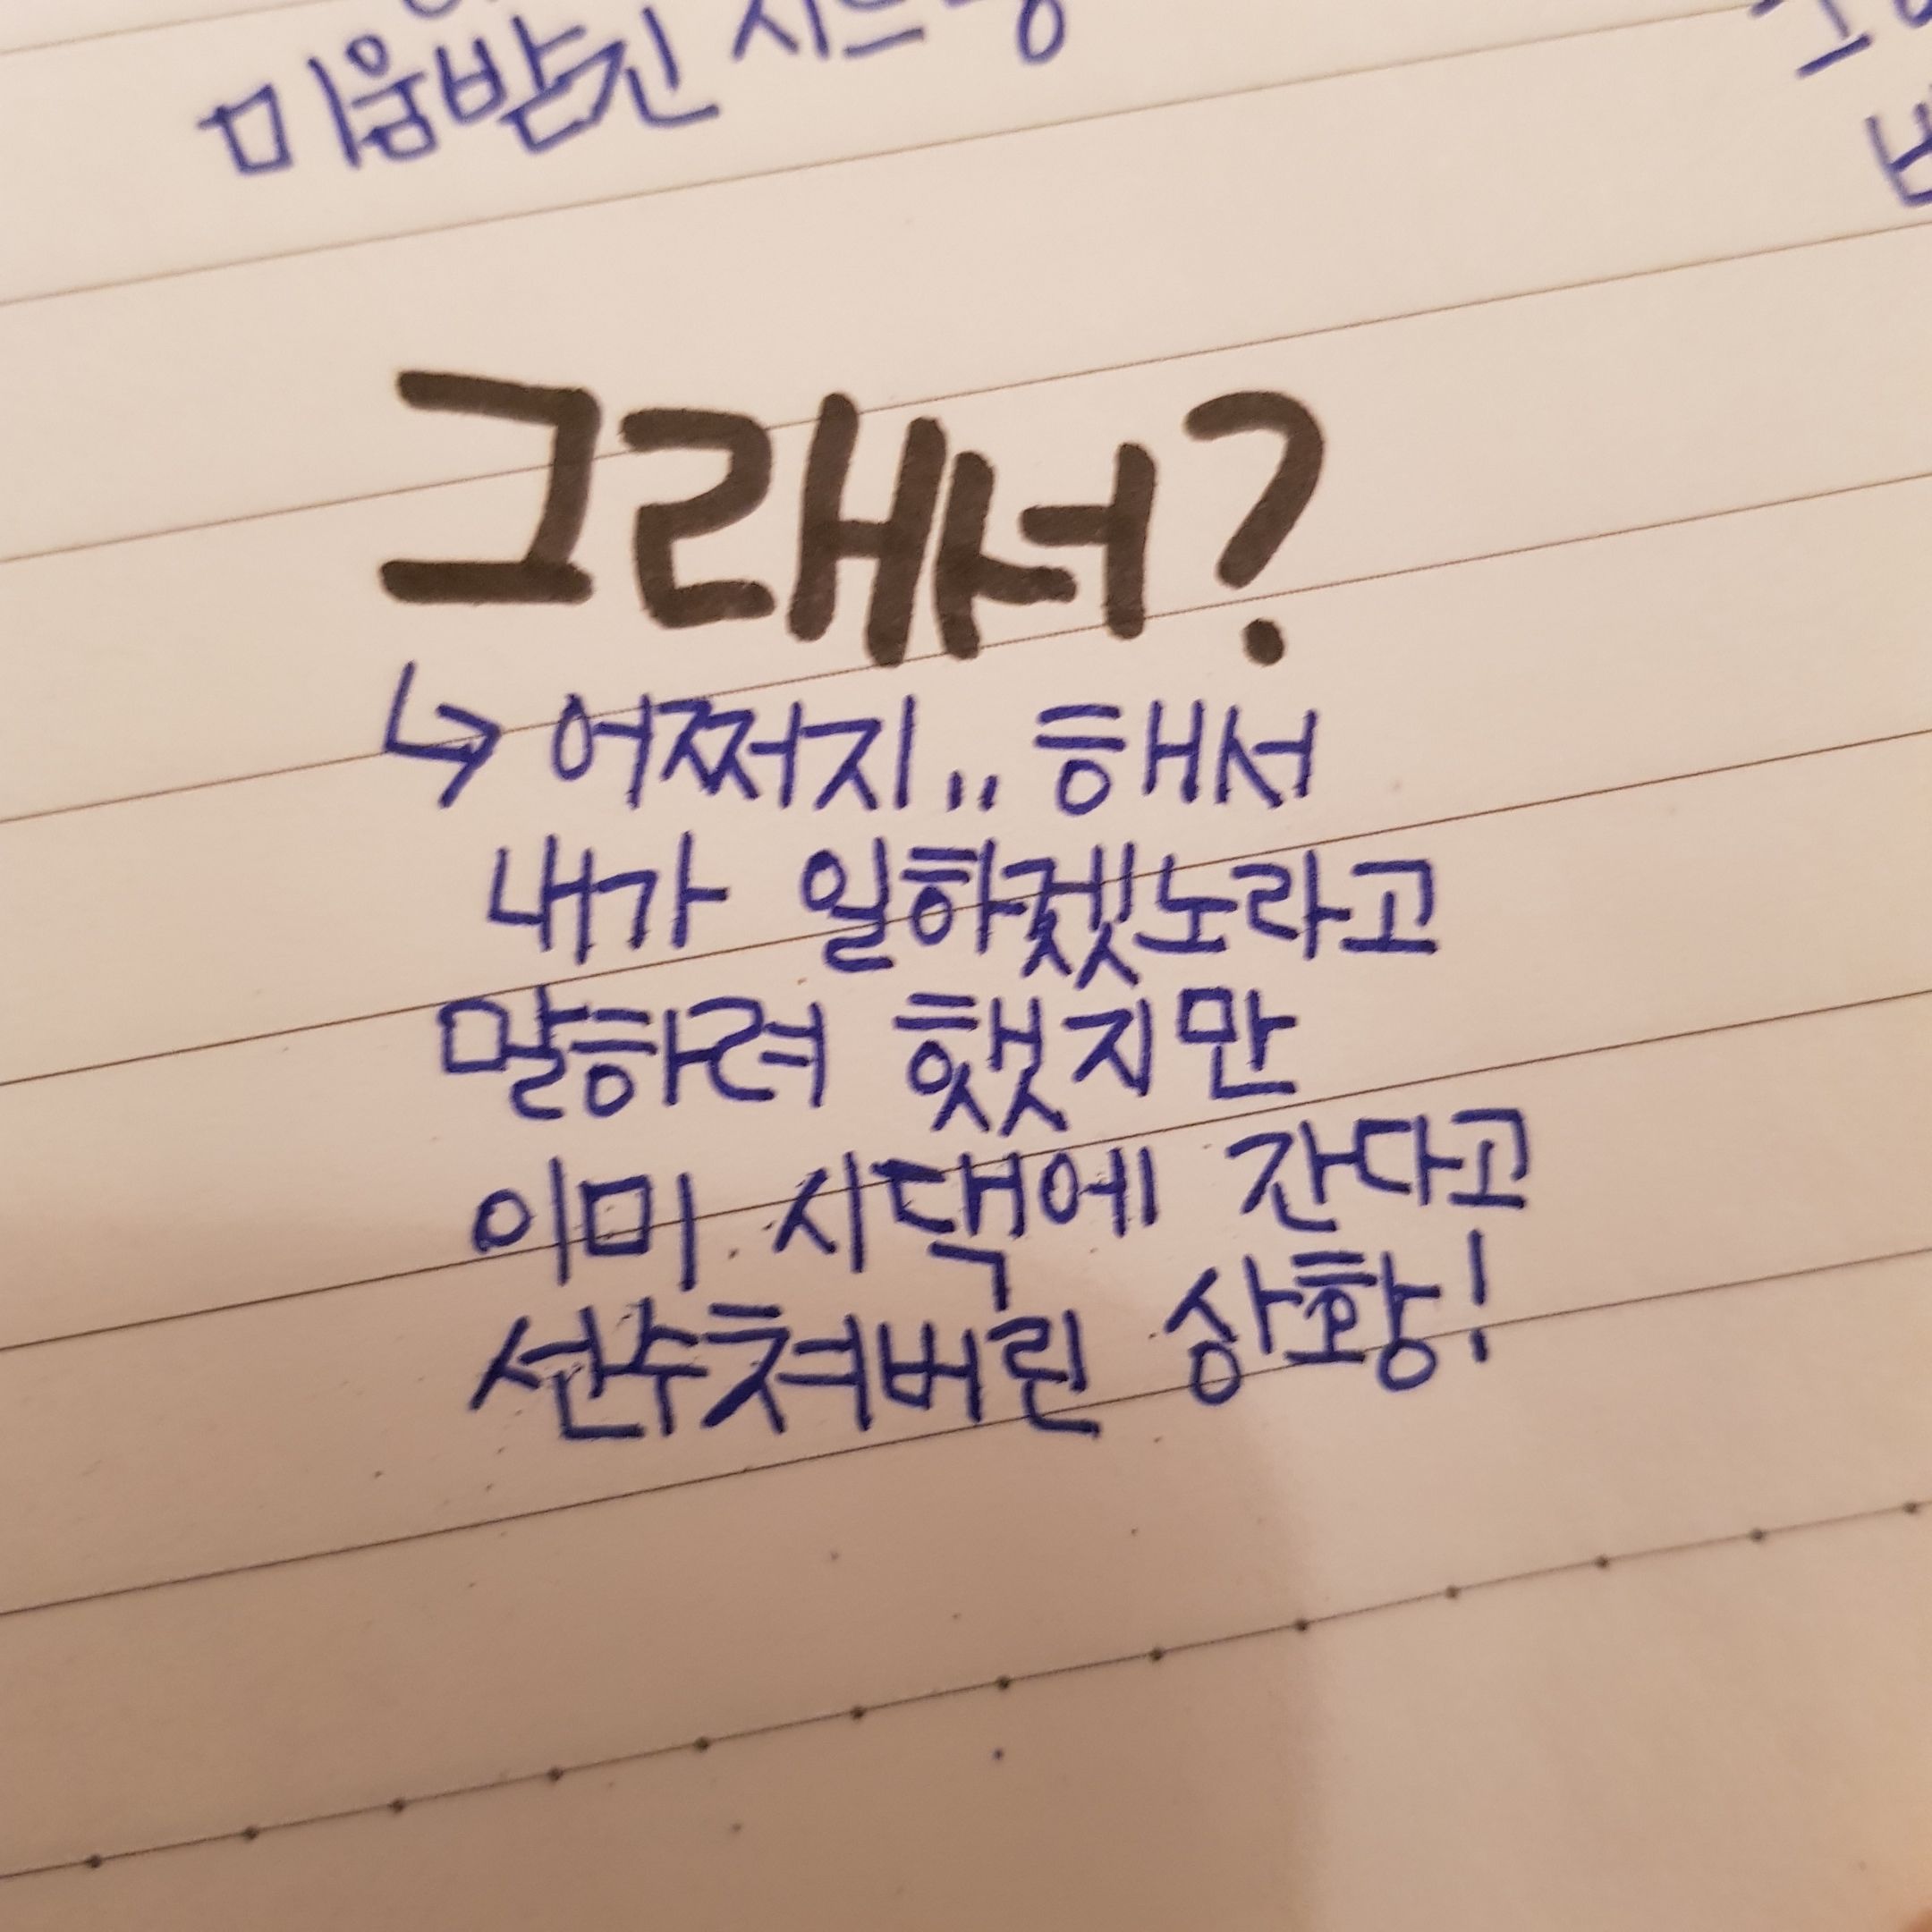 미움받긴
그래서?
↳ 어쩌지.. 해서
내가 일하겠노라고
말하려 했지만
이미 시댁에 간다고
선수쳐버린 상황!